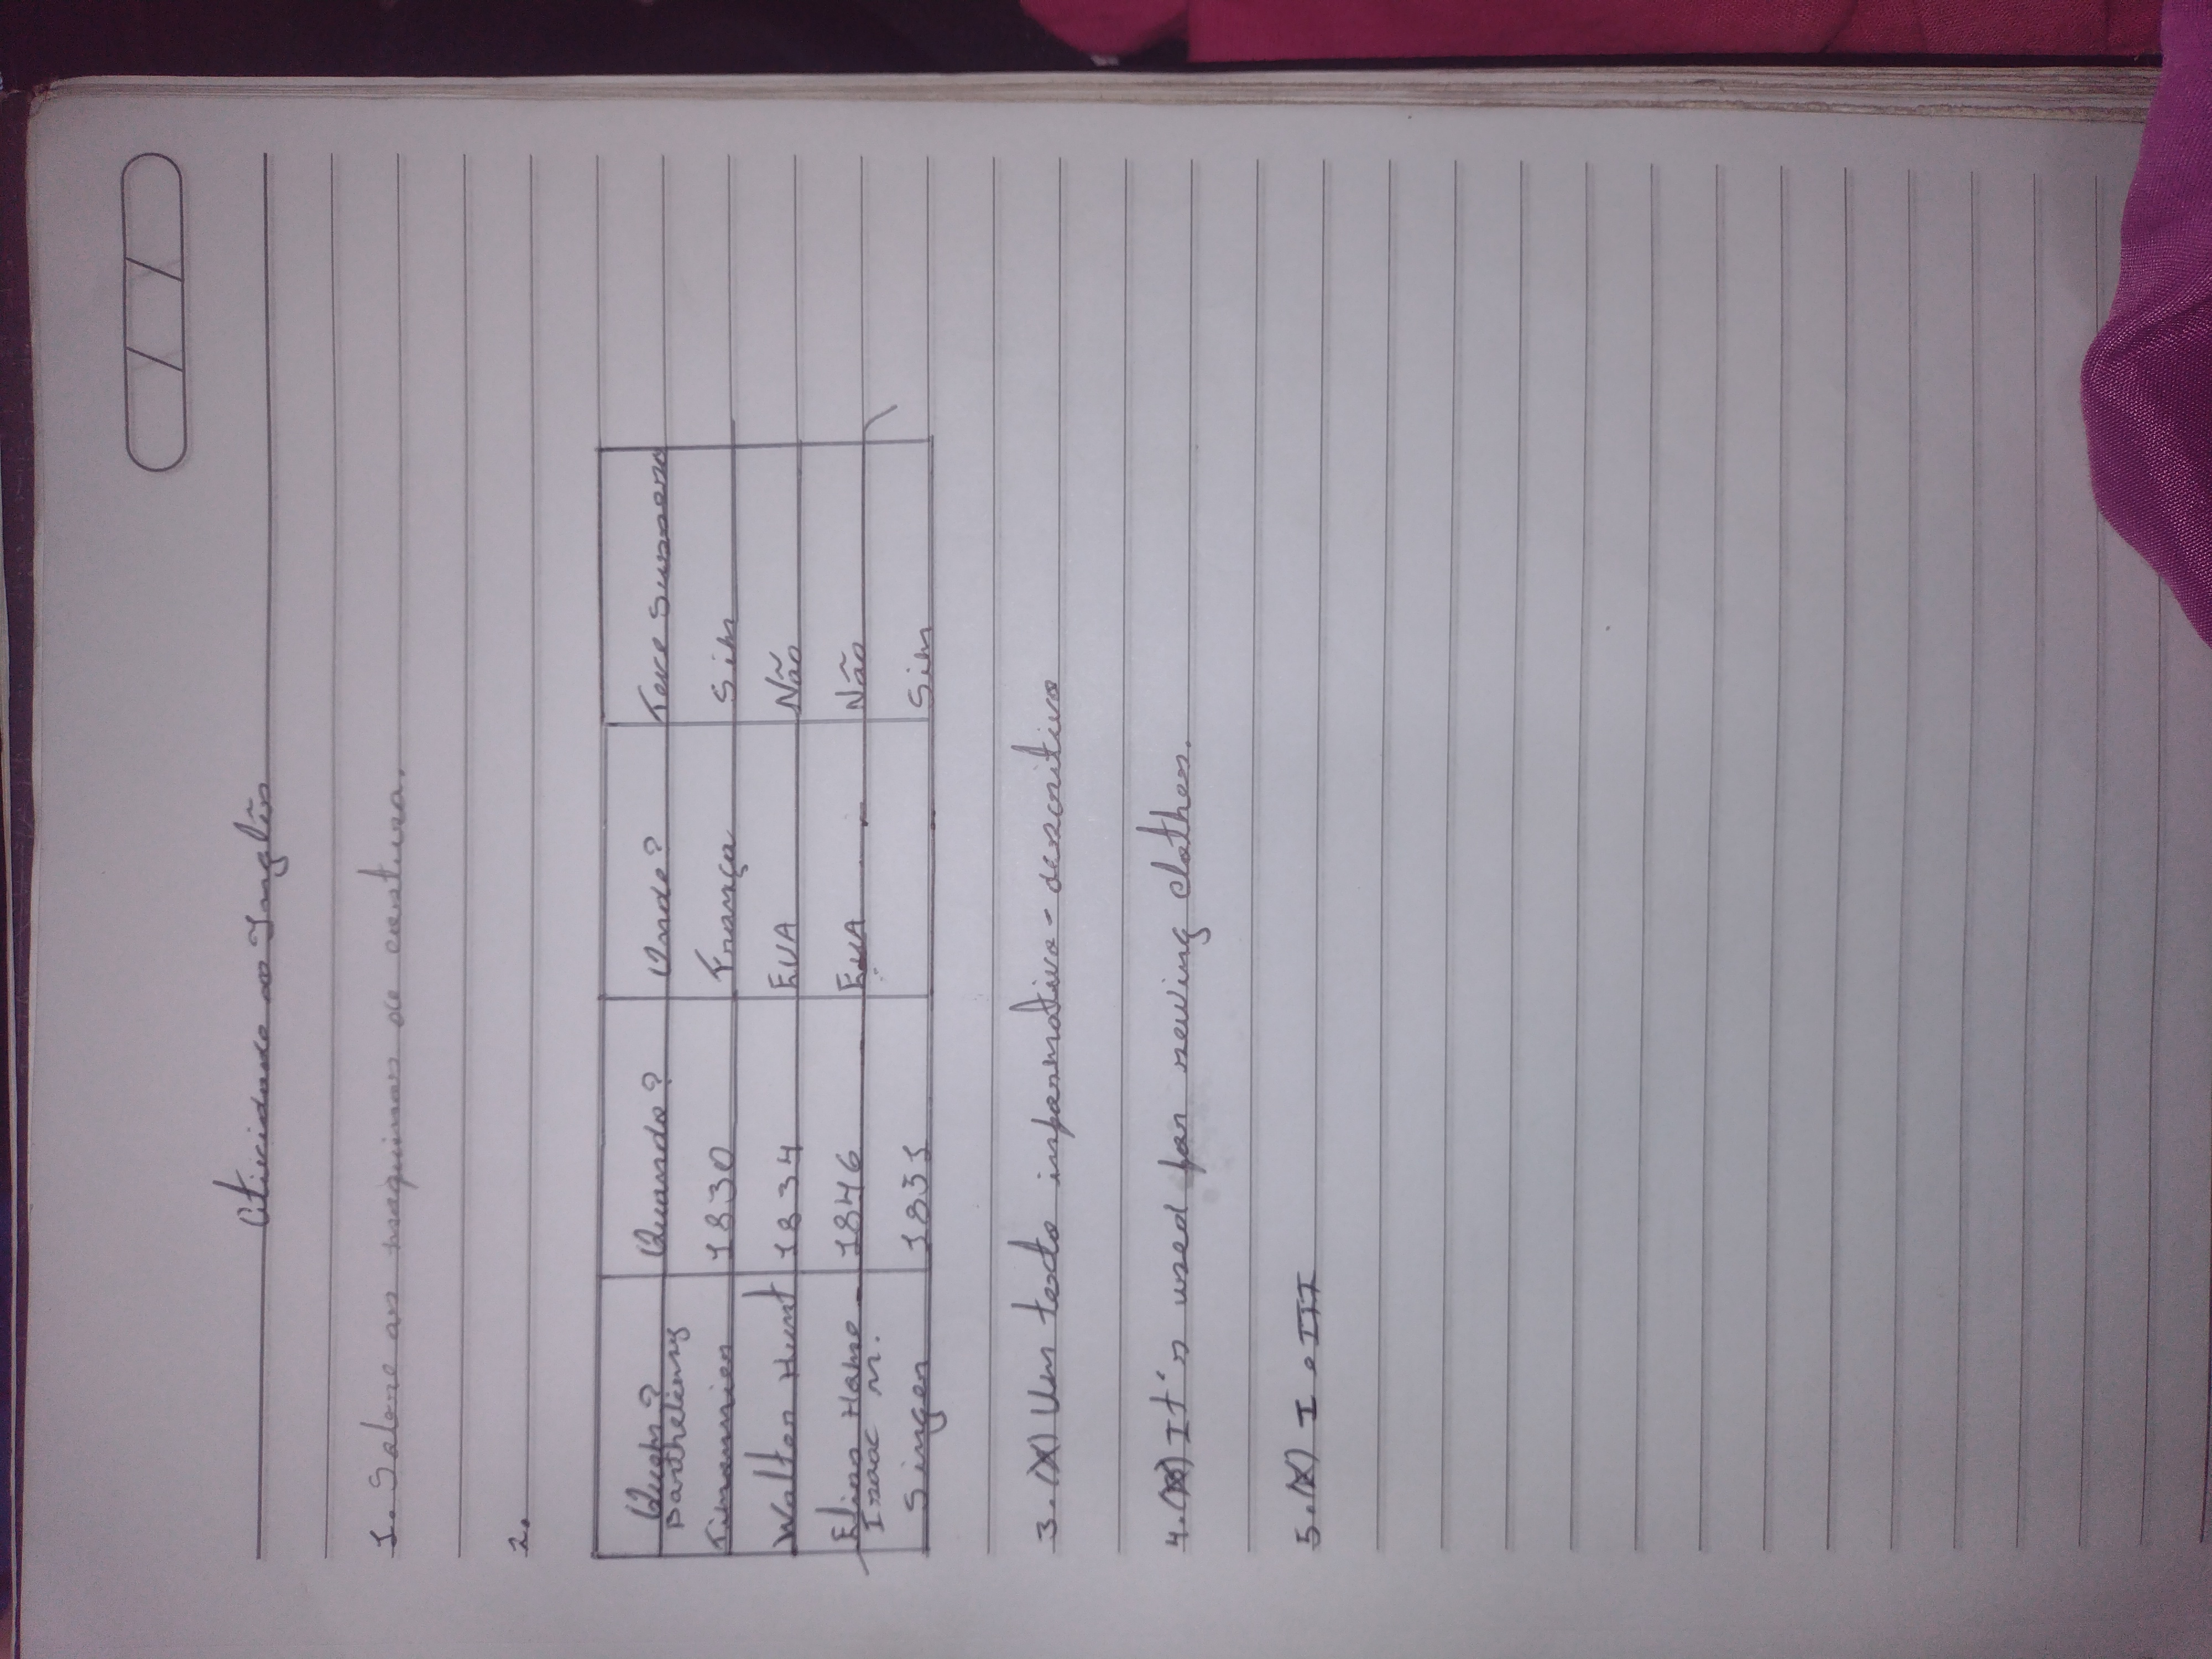 Atividade de Inglês
1. Sobre as maquinas de costura.
2.
Quem? Quando? Onde? Teve Sussero
Barthelémy
Timonnier 1830 França Sim
Walter Hunt 1834 EUA Não
Elias Howe 1846 EUA Não
Isaac M.
Singer 1851 Sim
3. (X) Um texto informativo-descritivo
4. (X) It's used for sewing clothes.
5. (X) I e III